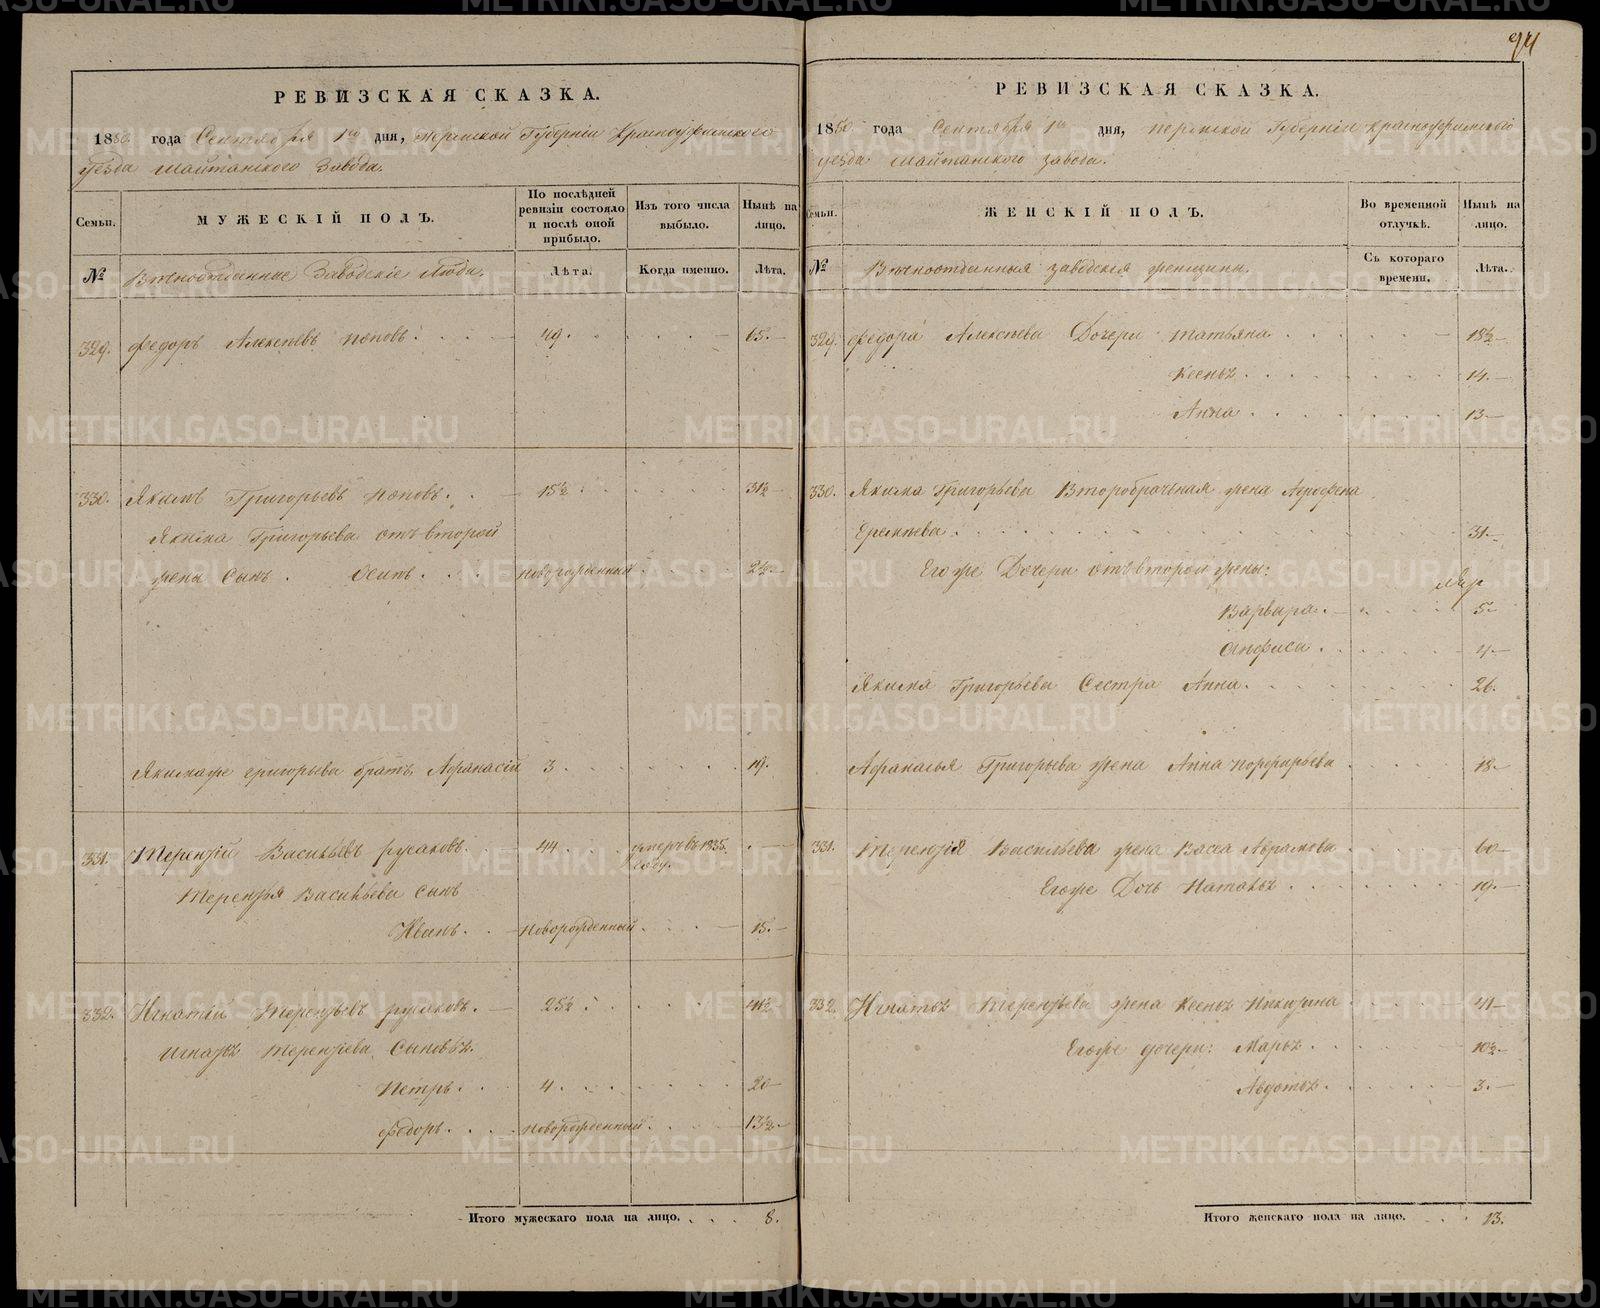 94
РЕВИЗСКАЯ СКАЗКА.
1850. года Сентября 1го дня, Пермской Губерніи Красноуфимского
уезда Шайтанского Завода.
Семьи.
МУЖЕСКІЙ ПОЛЪ.
По послѣдней ревизіи состояло и послѣ оной прибыло.
Изъ того числа выбыло.
Нынѣ на лицо.
№
Вѣчноотданные Заводскіе Люди.
Лѣта.
Когда именно.
Лѣта.
329. Федоръ Алексѣевъ Поповъ. 49. 65.
330. Якимъ Григорьевъ Поповъ. 15½ 31½
Якима Григорьева отъ второй
жены Сынъ. Осипъ. новорожденный 2½
Якимаже Григорьева братъ Афанасій 3 19.
331. Терентій Васильевъ Русаковъ. 44 умеръ въ 1835. году.
Терентья Васильева Сынъ
Иванъ. новорожденный 15.
332. Игнатій Терентьевъ Русаковъ. 25½ 41½
Игнатья Терентьева Сыновья.
Петръ. 4. 20
Федоръ. новорожденный. 13½
Итого мужескаго пола на лицо. 8.
РЕВИЗСКАЯ СКАЗКА.
1850. года Сентября 1го дня, Пермской Губерніи Красноуфимского
уезда Шайтанского завода.
Семьи.
ЖЕНСКІЙ ПОЛЪ.
Во временной отлучкѣ.
Нынѣ на лицо.
№
Вѣчноотданныя заводскія женщины.
Съ котораго времени.
Лѣта.
329. Федора Алексѣева Дочери Татьяна 18½
Ксенья 14.
Анна 13
330. Якима Григорьева Второбрачная жена Аграфена
Еремѣева 31
Егоже Дочери отъ второй жены:
Варвара. 5
Анфиса. 4
Якима Григорьева Сестра Анна. 26.
Афанасья Григорьева жена Анна Порфирьева 18
331. Терентія Васильева жена Васса Абрамова 60
Егоже Дочь Наталья 19.
332. Игнатья Терентьева жена Ксенья Никитина 41
Егоже дочери: Марья. 10½
Авдотья. 3.
Итого женскаго пола на лицо. 13.
METRIKI.GASO-URAL.RU